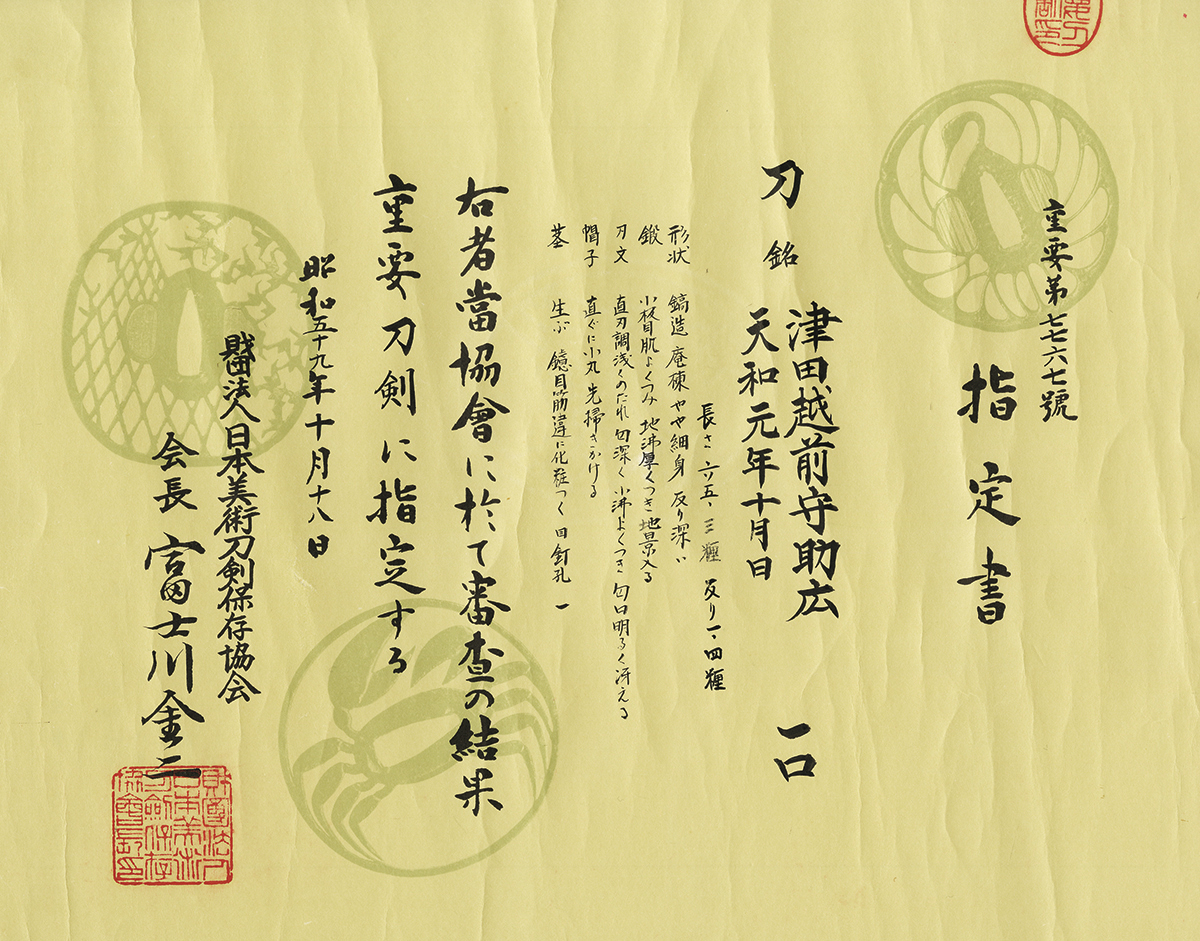 重要第七七六七號
指定書
津田越前守助広
刀 銘 一口
天和元年十月日
長さ 六五、三糎 反り一、四糎
形状 鎬造 庵棟 やや細身 反り深い
鍛 小板目肌よくつみ 地沸厚くつき 地景入る
刃文 直刃調浅くのたれ 匂深く 小沸よくつき 匂口明るく冴える
帽子 直ぐに小丸 先掃きかける
茎 生ぶ 鑢目筋違に化粧つく 目釘孔一
右者當協會に於て審査の結果
重要刀剣に指定する
昭和五十九年十月十八日
財団法人日本美術刀剣保存協会
会長 富士川金二